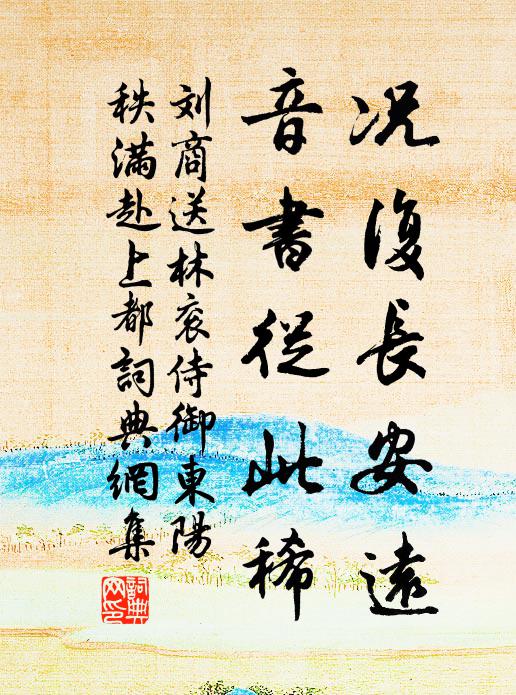 况復長安遠
音書從此稀
刘商送林衮侍御東陽
秩滿赴上都詞典網集